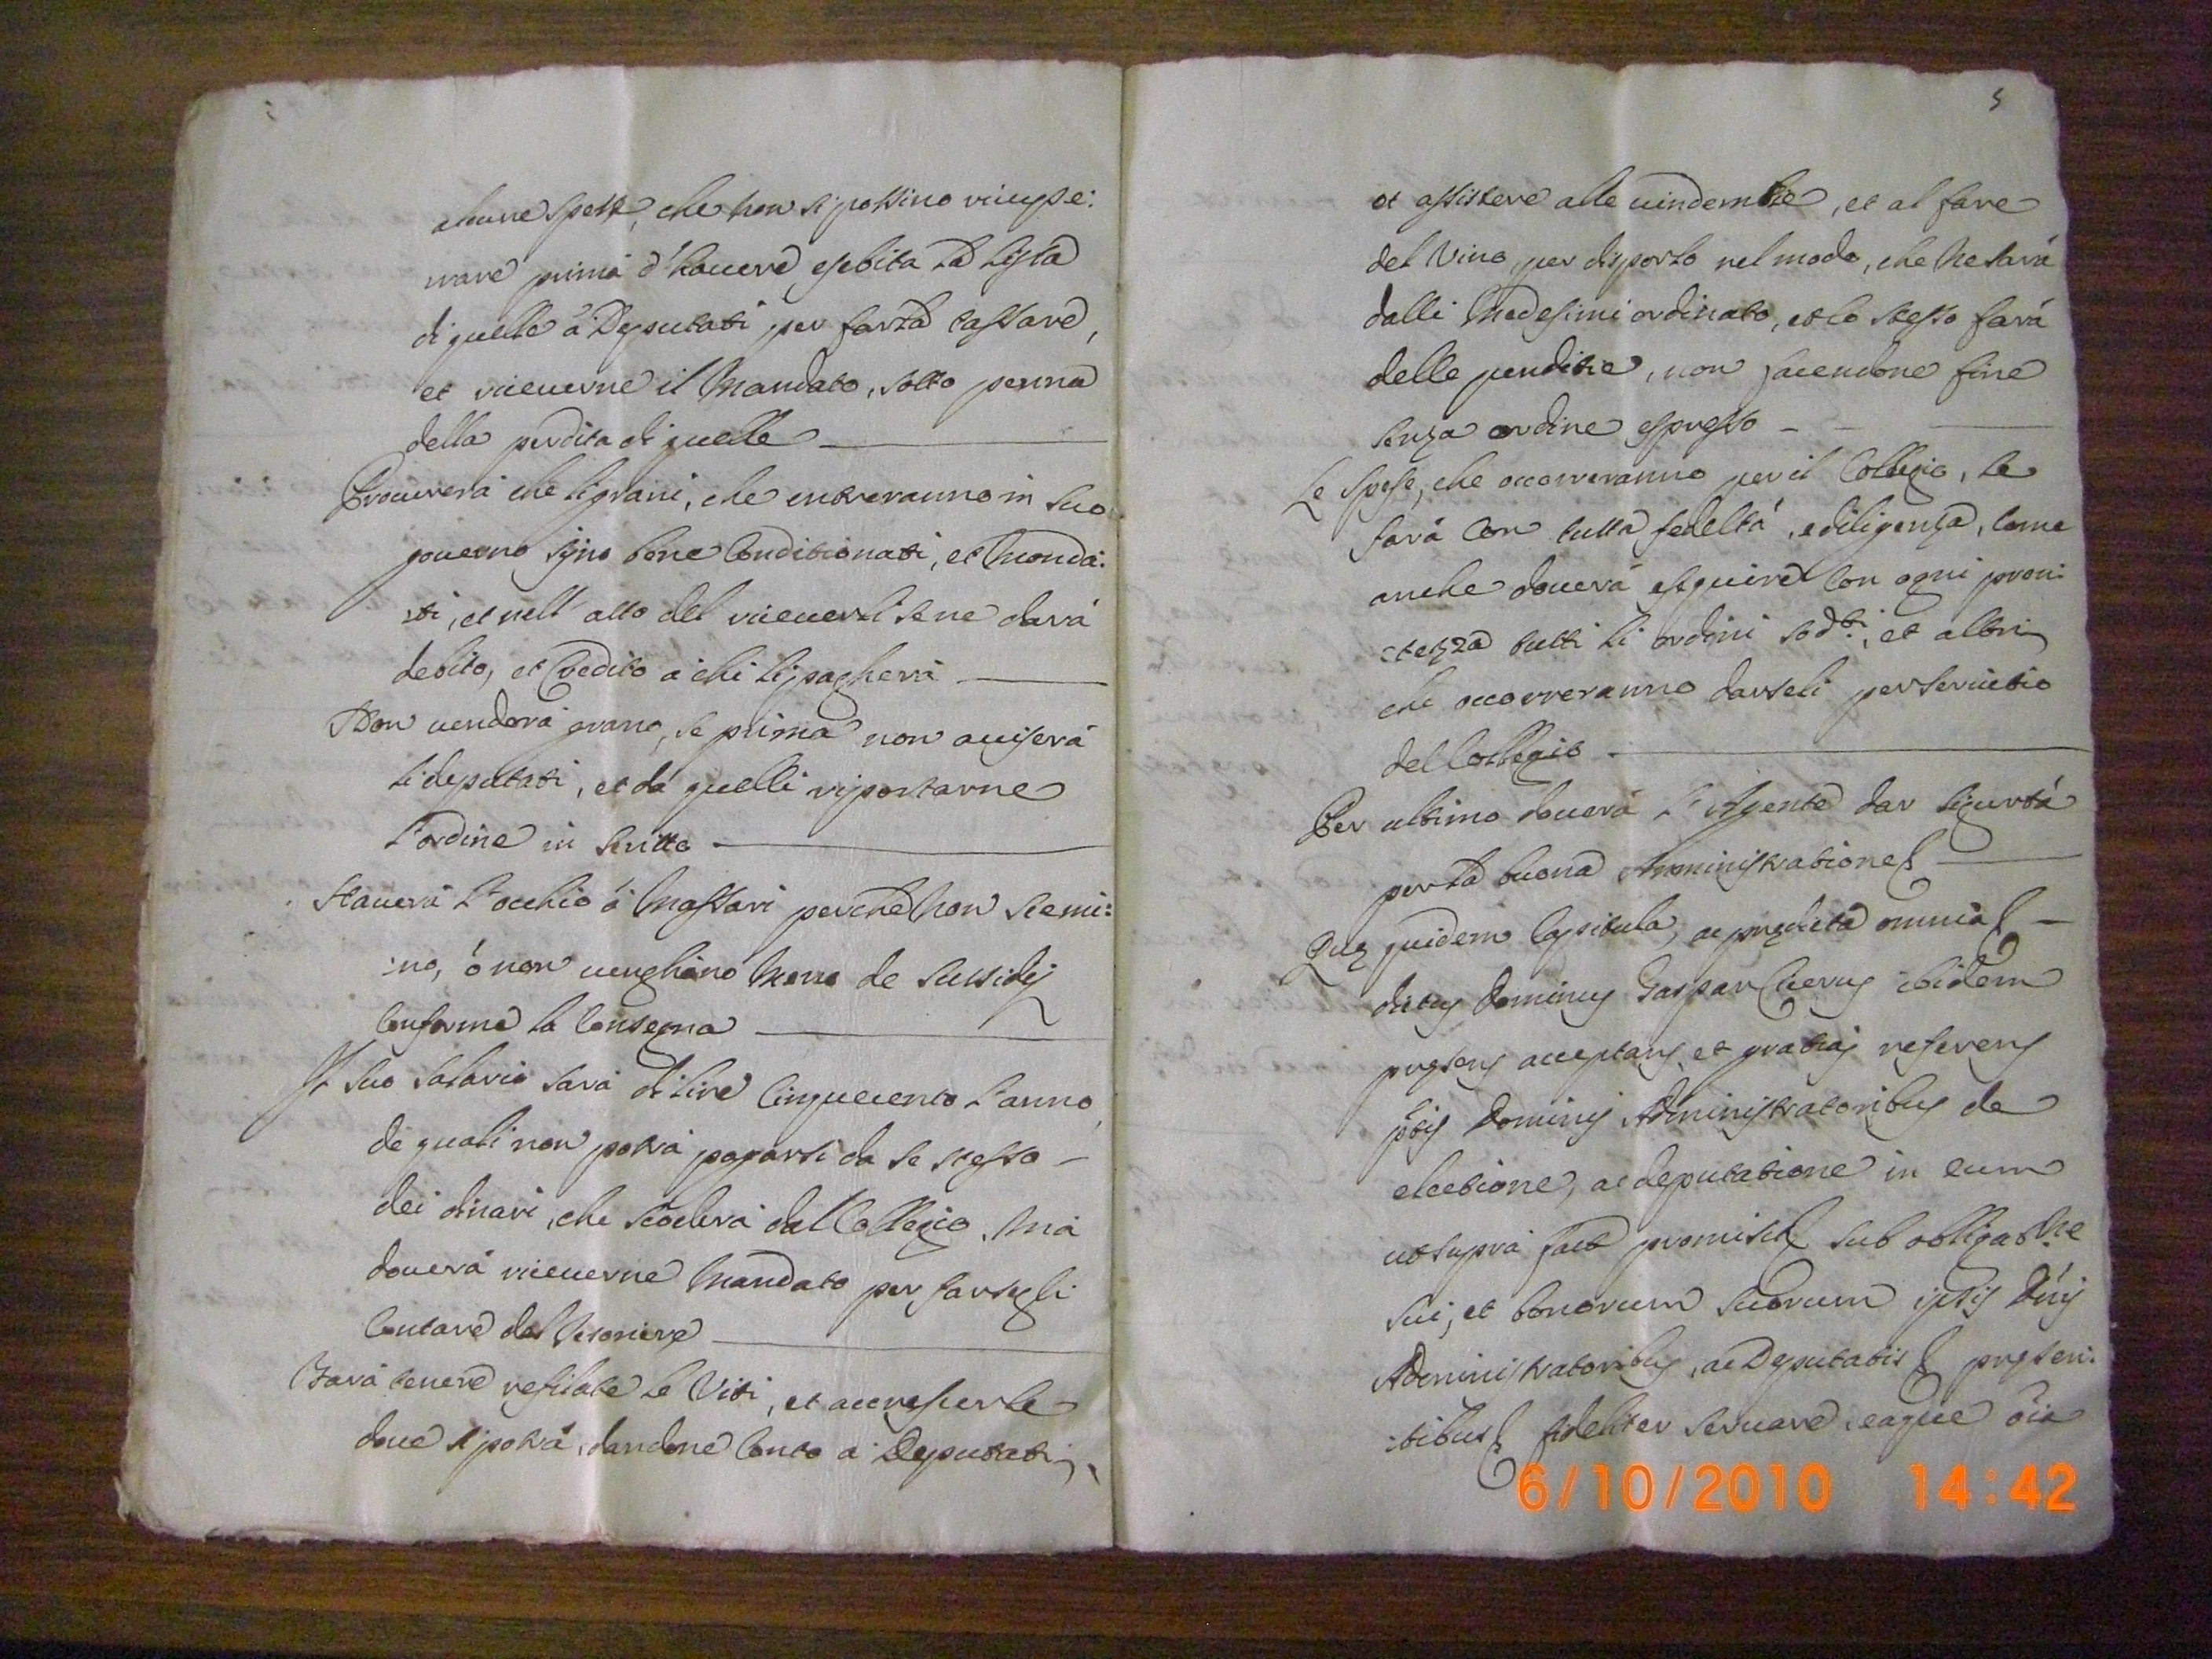 alcune spese, che non si possino ricupe:
rare prima d'hauere esebita la lista
di quelle a Deputati per farla tassare,
et riceuerne il Mandato, sotto penna
della perdita di quelle
Procurerà che li grani, che entreranno in suo
gouerno sijno bene Conditionati, et Monda:
:ti, et nell' atto del riceuerli se ne darà
debito, et Credito a chi li pagherà
Non venderà grano, se prima non auiserà
li deputati, et da quelli riportarne
l'ordine in scritto
Hauerà l'occhio á Massari perche non semi:
:no, ó non venghino meno de sussidij
Conforme la Consegna
Il suo salario sarà di lire Cinquecento l'anno,
de quali non potrà pagarsi da se stesso
dei dinari, che scoderà dal Collegio, Ma
douerà riceuerne Mandato per farsegli
Contare dal Tesoriere
Farà tenere refilate le Viti, et accrescerle
doue si potrà, dandone Conto a Deputati,
5
et assistere alle vindemie, et al fare
del Vino, per disporlo nel modo, che ne sarà
dalli Medesimi ordinato, et lo stesso farà
delle vendite, non facendone fine
senza ordine espresso
Le spese, che occorreranno per il Collegio, le
farà Con tutta fedeltà, e diligenza, Come
anche douerà esequire Con ogni pron:
:tezza tutti li ordini sod.ti, et altri
che occorreranno darseli per seruitio
del Collegio
Per ultimo douerà l'Agente dar sigurtà
per la buona Amministratione
Quę quidem Capitula, ac prędicta omnia
dictus Dominus Gaspar Clerus ibidem
pręsens acceptans, et gratias referens
pȓtis Dominis Administratoribus de
electione, ac deputatione in eum
ut supra facta promisit sub obligat.ne
sui, et bonorum suorum ipsis D'nis
Administratoribus, ac Deputatis pręsen:
:tibus fideliter seruare eaque o'ia
6/10/2010 14:42